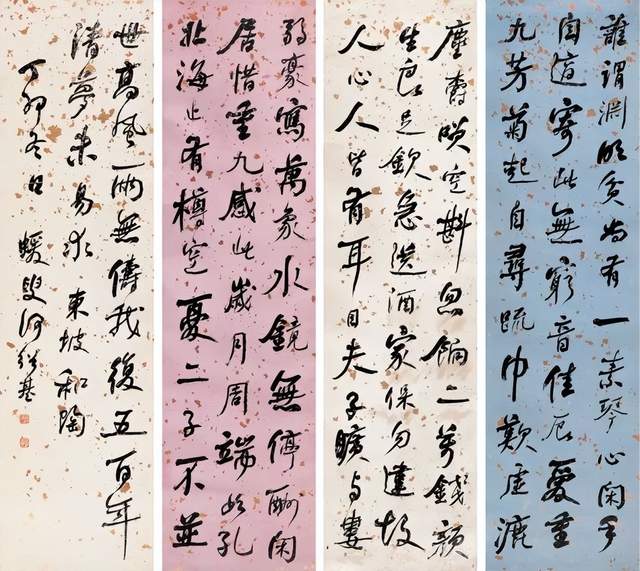 誰謂淵明貧尚有一素琴心閑手
自適寄此無窮音佳辰愛重
九芳菊起自尋疏巾歎虛漉
塵爵笑空斟忽餉二萬錢顏
生良足欽急送酒家保勿違故
人心人皆有耳目夫子曠與婁
弱豪寫萬象水鏡無停酬閑
居惜重九感此歲月周端如孔
北海止有樽空憂二子不並
世高風兩無儔我後五百年
清夢未易求 東坡和陶
丁卯冬日 蝯叟何紹基